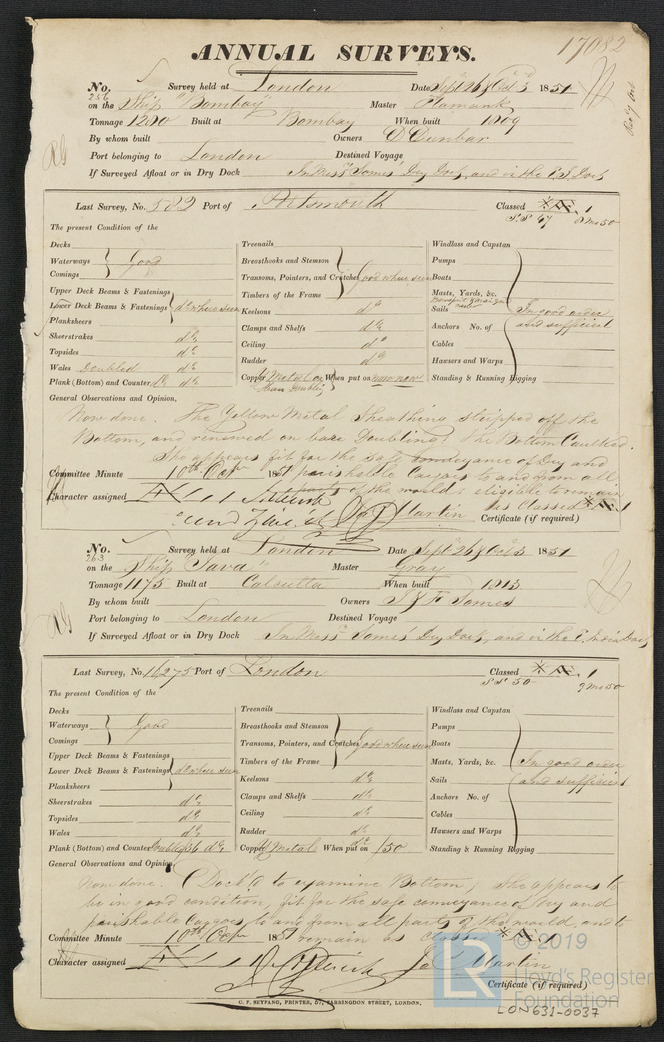 17082
ANNUAL SURVEYS.
No. 256 Survey held at London Date Sept 26 & Oct 3 1851
on the Ship "Bombay" Master Flamank
Tonnage 1280 Built at Bombay When built 1809
By whom built Owners D Dunbar
Port belonging to London Destined Voyage
If Surveyed Afloat or in Dry Dock In Messrs Somes Dry Dock, and in the E. I. Dock
Last Survey, No. 582 Port of Portsmouth Classed Æ 1
S.S 47 8 Mo 50
The present Condition of the
Decks
Waterways Good
Comings
Upper Deck Beams & Fastenings
Lower Deck Beams & Fastenings do where seen
Planksheers
Sheerstrakes do
Topsides do
Wales Doubled do
Plank (Bottom) and Counter do
Treenails
Breasthooks and Stemson
Transoms, Pointers, and Crutches Good where seen
Timbers of the Frame
Keelsons do
Clamps and Shelfs do
Ceiling do
Rudder do
Copper Y Metal on When put on now new
Bare Doubling
Windlass and Capstan
Pumps
Boats
Masts, Yards, &c.
Sails In good order
Anchors No. of and sufficient
Cables
Hawsers and Warps
Standing & Running Rigging
General Observations and Opinion,
Now done. The Yellow Metal Sheathing stripped off the
Bottom, and renewed on bare Doubling. The Bottom Caulked.
She appears fit for the safe conveyance of Dry and
Committee Minute 10th Octr 1851 perishable Cargoes to and from all
parts of the world, & eligible to remain
Character assigned Æ 1 as Classed Æ 1
Jas Martin Certificate (if required)
No. 263 Survey held at London Date Sept 26 & Oct 3 1851
on the Ship "Java" Master Gray
Tonnage 1175 Built at Calcutta When built 1813
By whom built Owners J & F Somes
Port belonging to London Destined Voyage
If Surveyed Afloat or in Dry Dock In Messrs Somes Dry Dock, and in the E. India Dock
Last Survey, No. 16275 Port of London Classed Æ 1
S S 50 9 Mo 50
The present Condition of the
Decks
Waterways Good
Comings
Upper Deck Beams & Fastenings
Lower Deck Beams & Fastenings do where seen
Planksheers
Sheerstrakes do
Topsides do
Wales do
Plank (Bottom) and Counter Doubled 36 do
Treenails
Breasthooks and Stemson
Transoms, Pointers, and Crutches Good where seen
Timbers of the Frame
Keelsons do
Clamps and Shelfs do
Ceiling do
Rudder do
Copper Y Metal When put on /50
Windlass and Capstan
Pumps
Boats
Masts, Yards, &c. In good order
Sails and sufficient
Anchors No. of
Cables
Hawsers and Warps
Standing & Running Rigging
General Observations and Opinion,
Now done. Dock'd to examine Bottom; She appears to
be in good condition, fit for the safe conveyance of Dry and
perishable Cargoes to and from all parts of the world, and to
Committee Minute 10th Octr 1851 remain as Classed Æ 1
Character assigned Æ 1 Jas Martin
Certificate (if required)
G. F. SEYFANG, PRINTER, 57, FARRINGDON STREET, LONDON.
LR © 2019
Lloyd's Register
Foundation
LON631-0037